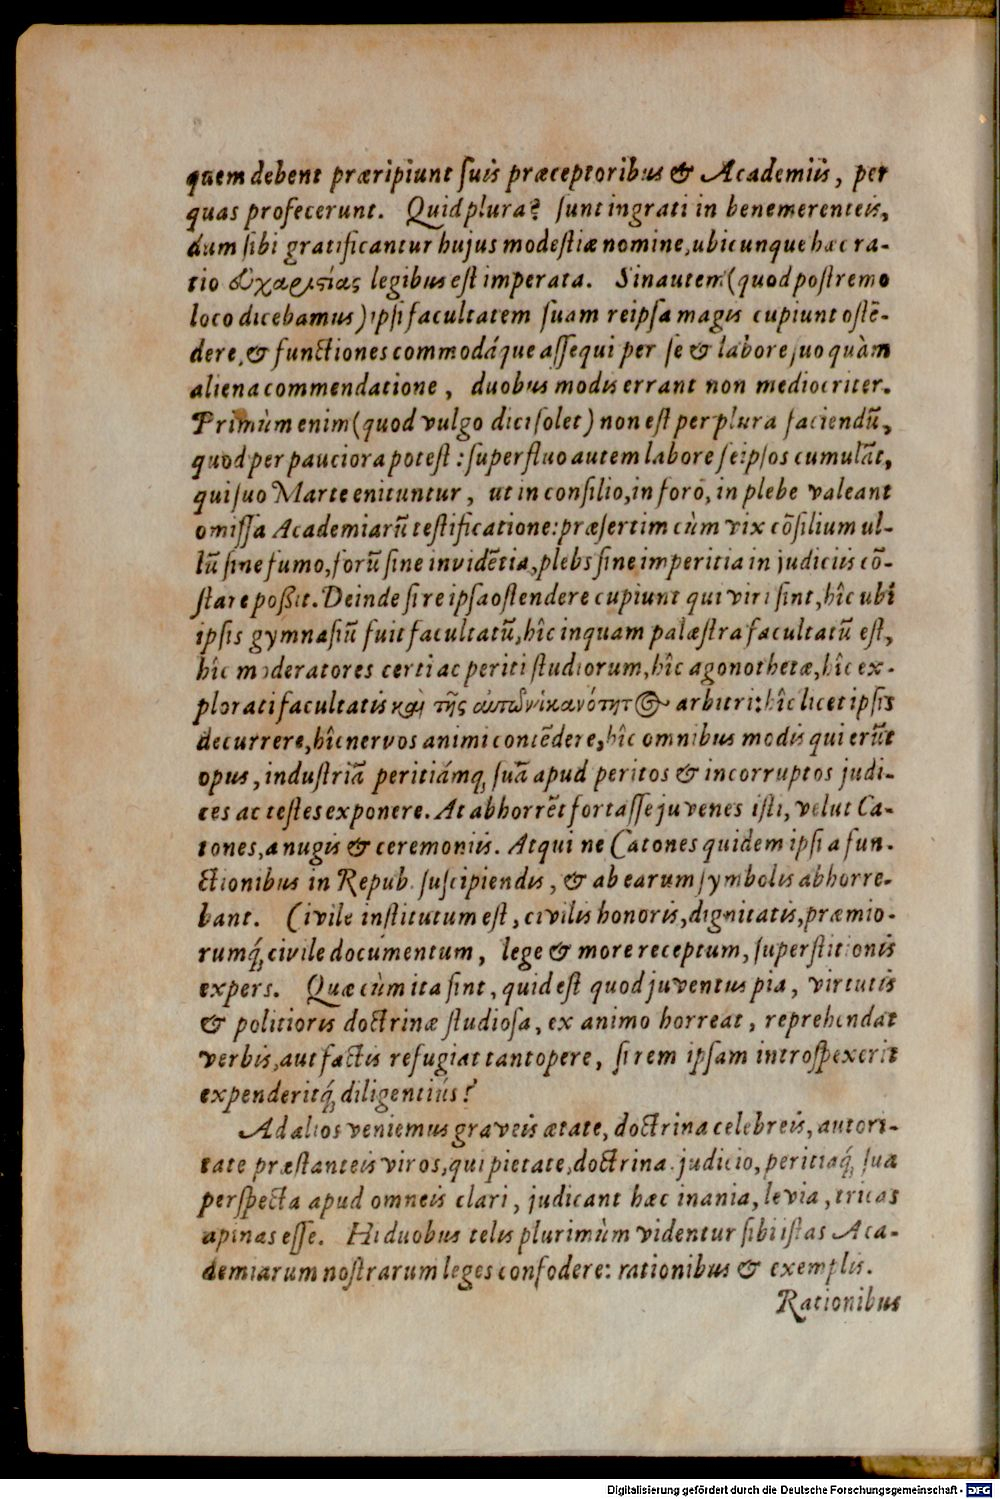 quem debent præripiunt suis præceptoribus & Academiis, per
quas profecerunt. Quid plura? sunt ingrati in benemerenteis,
dum sibi gratificantur hujus modestiæ nomine, ubicunque hæc ra-
tio εὐχαριστίας legibus est imperata. Sin autem (quod postremo
loco dicebamus) ipsi facultatem suam reipsa magis cupiunt ostē-
dere, & functiones commodáque assequi per se & labore suo quàm
aliena commendatione, duobus modis errant non mediocriter.
Primùm enim (quod vulgo dici solet) non est per plura faciendū,
quod per pauciora potest: superfluo autem labore seipsos cumulāt,
qui suo Marte enituntur, ut in consilio, in foro, in plebe valeant
omissa Academiarū testificatione: præsertim cùm vix cōsilium ul-
lū sine fumo, forū sine invidētia, plebs sine imperitia in judiciis cō-
stare poßit. Deinde si reipsa ostendere cupiunt qui viri sint, hîc ubi
ipsis gymnasiū fuit facultatū, hîc inquam palæstra facultatū est,
hîc moderatores certi ac periti studiorum, hîc agonothetæ, hîc ex-
plorati facultatis καὶ τῆς αὐτῶν ἱκανότητος arbitri: hîc licet ipsis
decurrere, hîc nervos animi contēdere, hîc omnibus modis qui erūt
opus, industriā peritiámq; suā apud peritos & incorruptos judi-
ces ac testes exponere. At abhorrēt fortasse juvenes isti, velut Ca-
tones, a nugis & ceremoniis. Atqui ne Catones quidem ipsi a fun-
ctionibus in Repub. suscipiendis, & ab earum symbolis abhorre-
bant. Civile institutum est, civilis honoris, dignitatis, præmio-
rumq́; civile documentum, lege & more receptum, superstitionis
expers. Quæ cùm ita sint, quid est quod juventus pia, virtutis
& politioris doctrinæ studiosa, ex animo horreat, reprehendat
verbis, aut factis refugiat tantopere, si rem ipsam introspexerit
expenderitq́; diligentiùs?
Ad alios veniemus graveis ætate, doctrina celebreis, autori-
tate præstanteis viros, qui pietate, doctrina, judicio, peritiaq́; sua
perspecta apud omneis clari, judicant hæc inania, levia, tricas
apinas esse. Hi duobus telis plurimùm videntur sibi istas Aca-
demiarum nostrarum leges confodere: rationibus & exemplis.
Rationibus
Digitalisierung gefördert durch die Deutsche Forschungsgemeinschaft - DFG